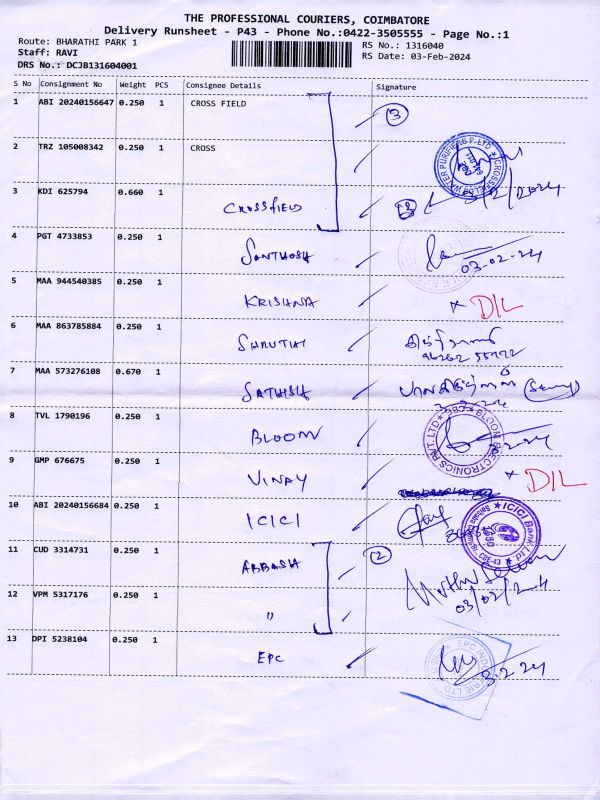 THE PROFESSIONAL COURIERS, COIMBATORE
Delivery Runsheet - P43 - Phone No.:0422-3505555 - Page No.:1
Route: BHARATHI PARK 1
RS No.: 1316040
Staff: RAVI
RS Date: 03-Feb-2024
DRS No.: DCJB131604001
S No Consignment No Weight PCS Consignee Details Signature
1 ABI 20240156647 0.250 1 CROSS FIELD
3
2 TRZ 105008342 0.250 1 CROSS
3 KDI 625794 0.660 1 CROSSFIELD 3 3/2/2024
4 PGT 4733853 0.250 1 SANTHOSH
03-02-24
5 MAA 944540385 0.250 1 KRISHNA × D/L
6 MAA 863785884 0.250 1 SHRUTHI
7 MAA 573276108 0.670 1 SATHISH
8 TVL 1790196 0.250 1 BLOOM
BLOOM ELECTRONICS PVT.LTD CBE
9 GMP 676675 0.250 1 VINAY × D/L
10 ABI 20240156684 0.250 1 ICICI
ICICI Bank LTD
11 CUD 3314731 0.250 1 ABBASH 2
12 VPM 5317176 0.250 1 "
03/02/24
13 DPI 5238104 0.250 1 EPC
3.2.24